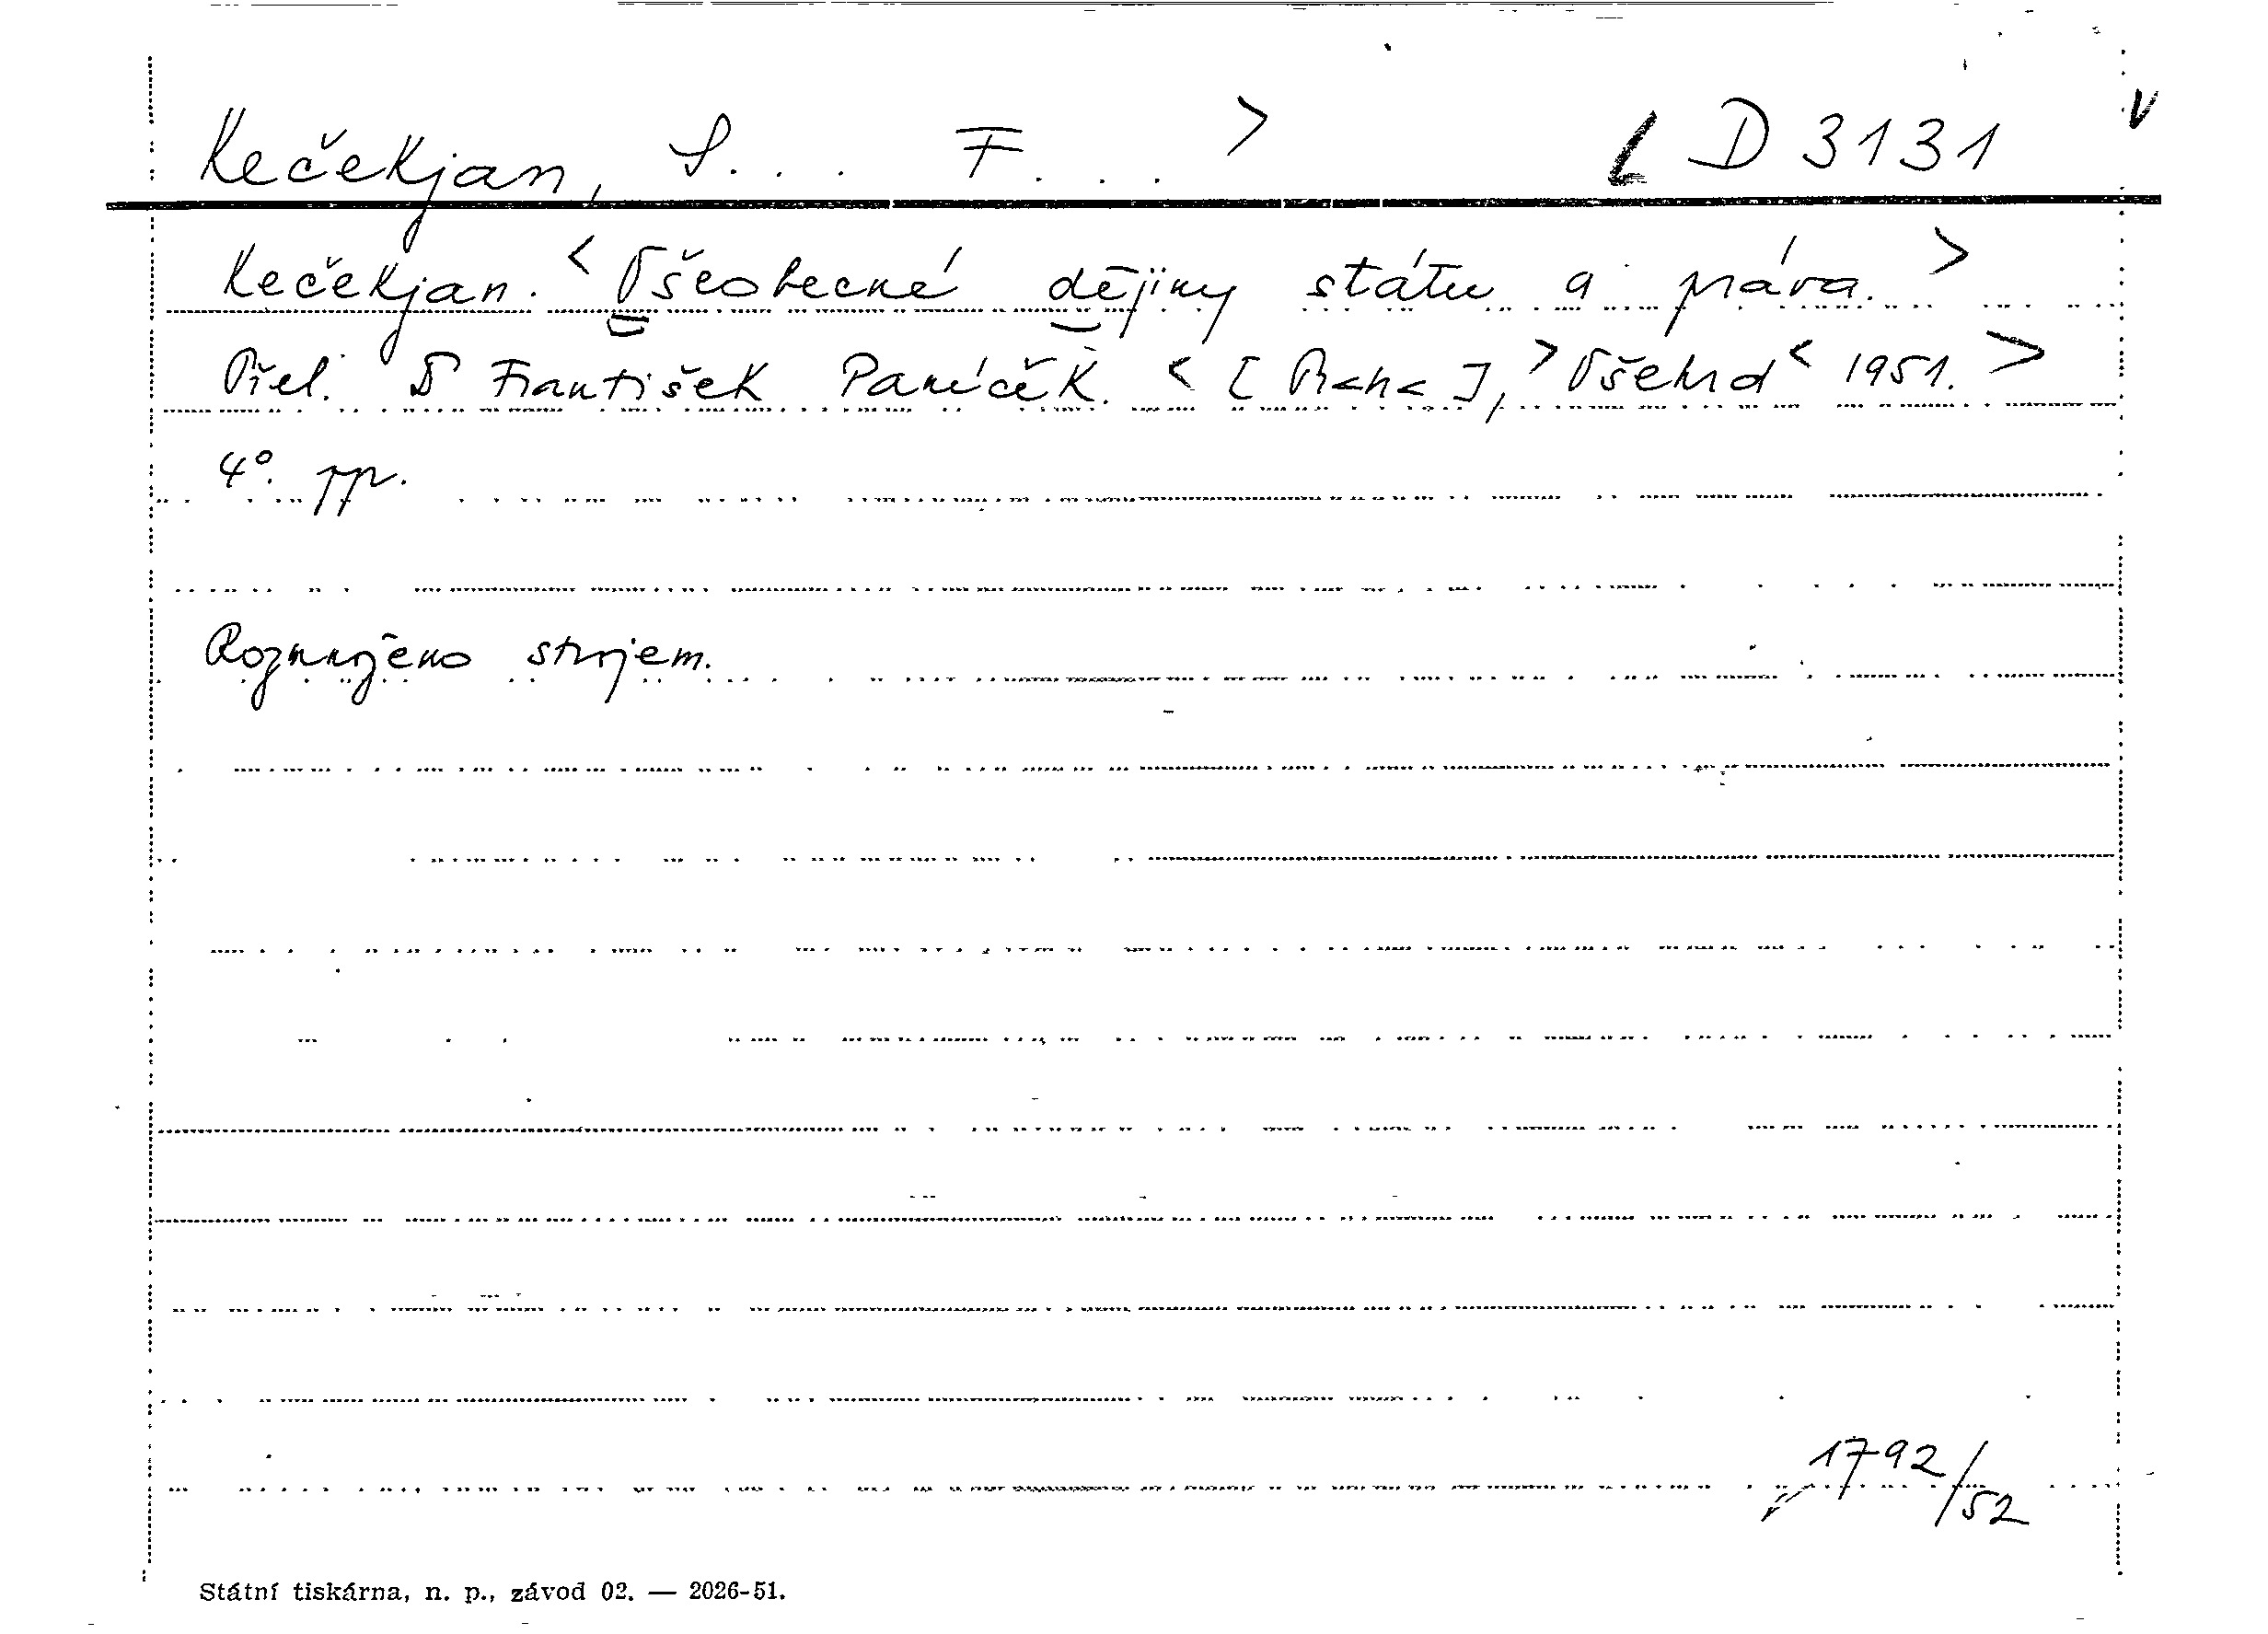 Kečekjan, S... F... > D 3131 v
Kečekjan. < Všeobecné dějiny státu a práva. >
Přel. František Paníček. < [Praha], > Všehrd < 1951. >
4°. pp.
Rozmnoženo strojem.
1792/52
Státní tiskárna, n. p., závod 02. — 2026-51.